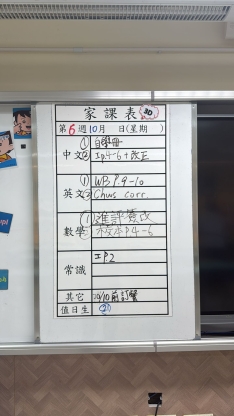 家課表 3D
第6週10月 日(星期 )
①自學冊
中文②工p4-6+改正
①WB P.9-10
英文②Chws corr.
①進評簽改
數學②校本P4-6
常識 工P2
其它 10/10前訂餐
值日生